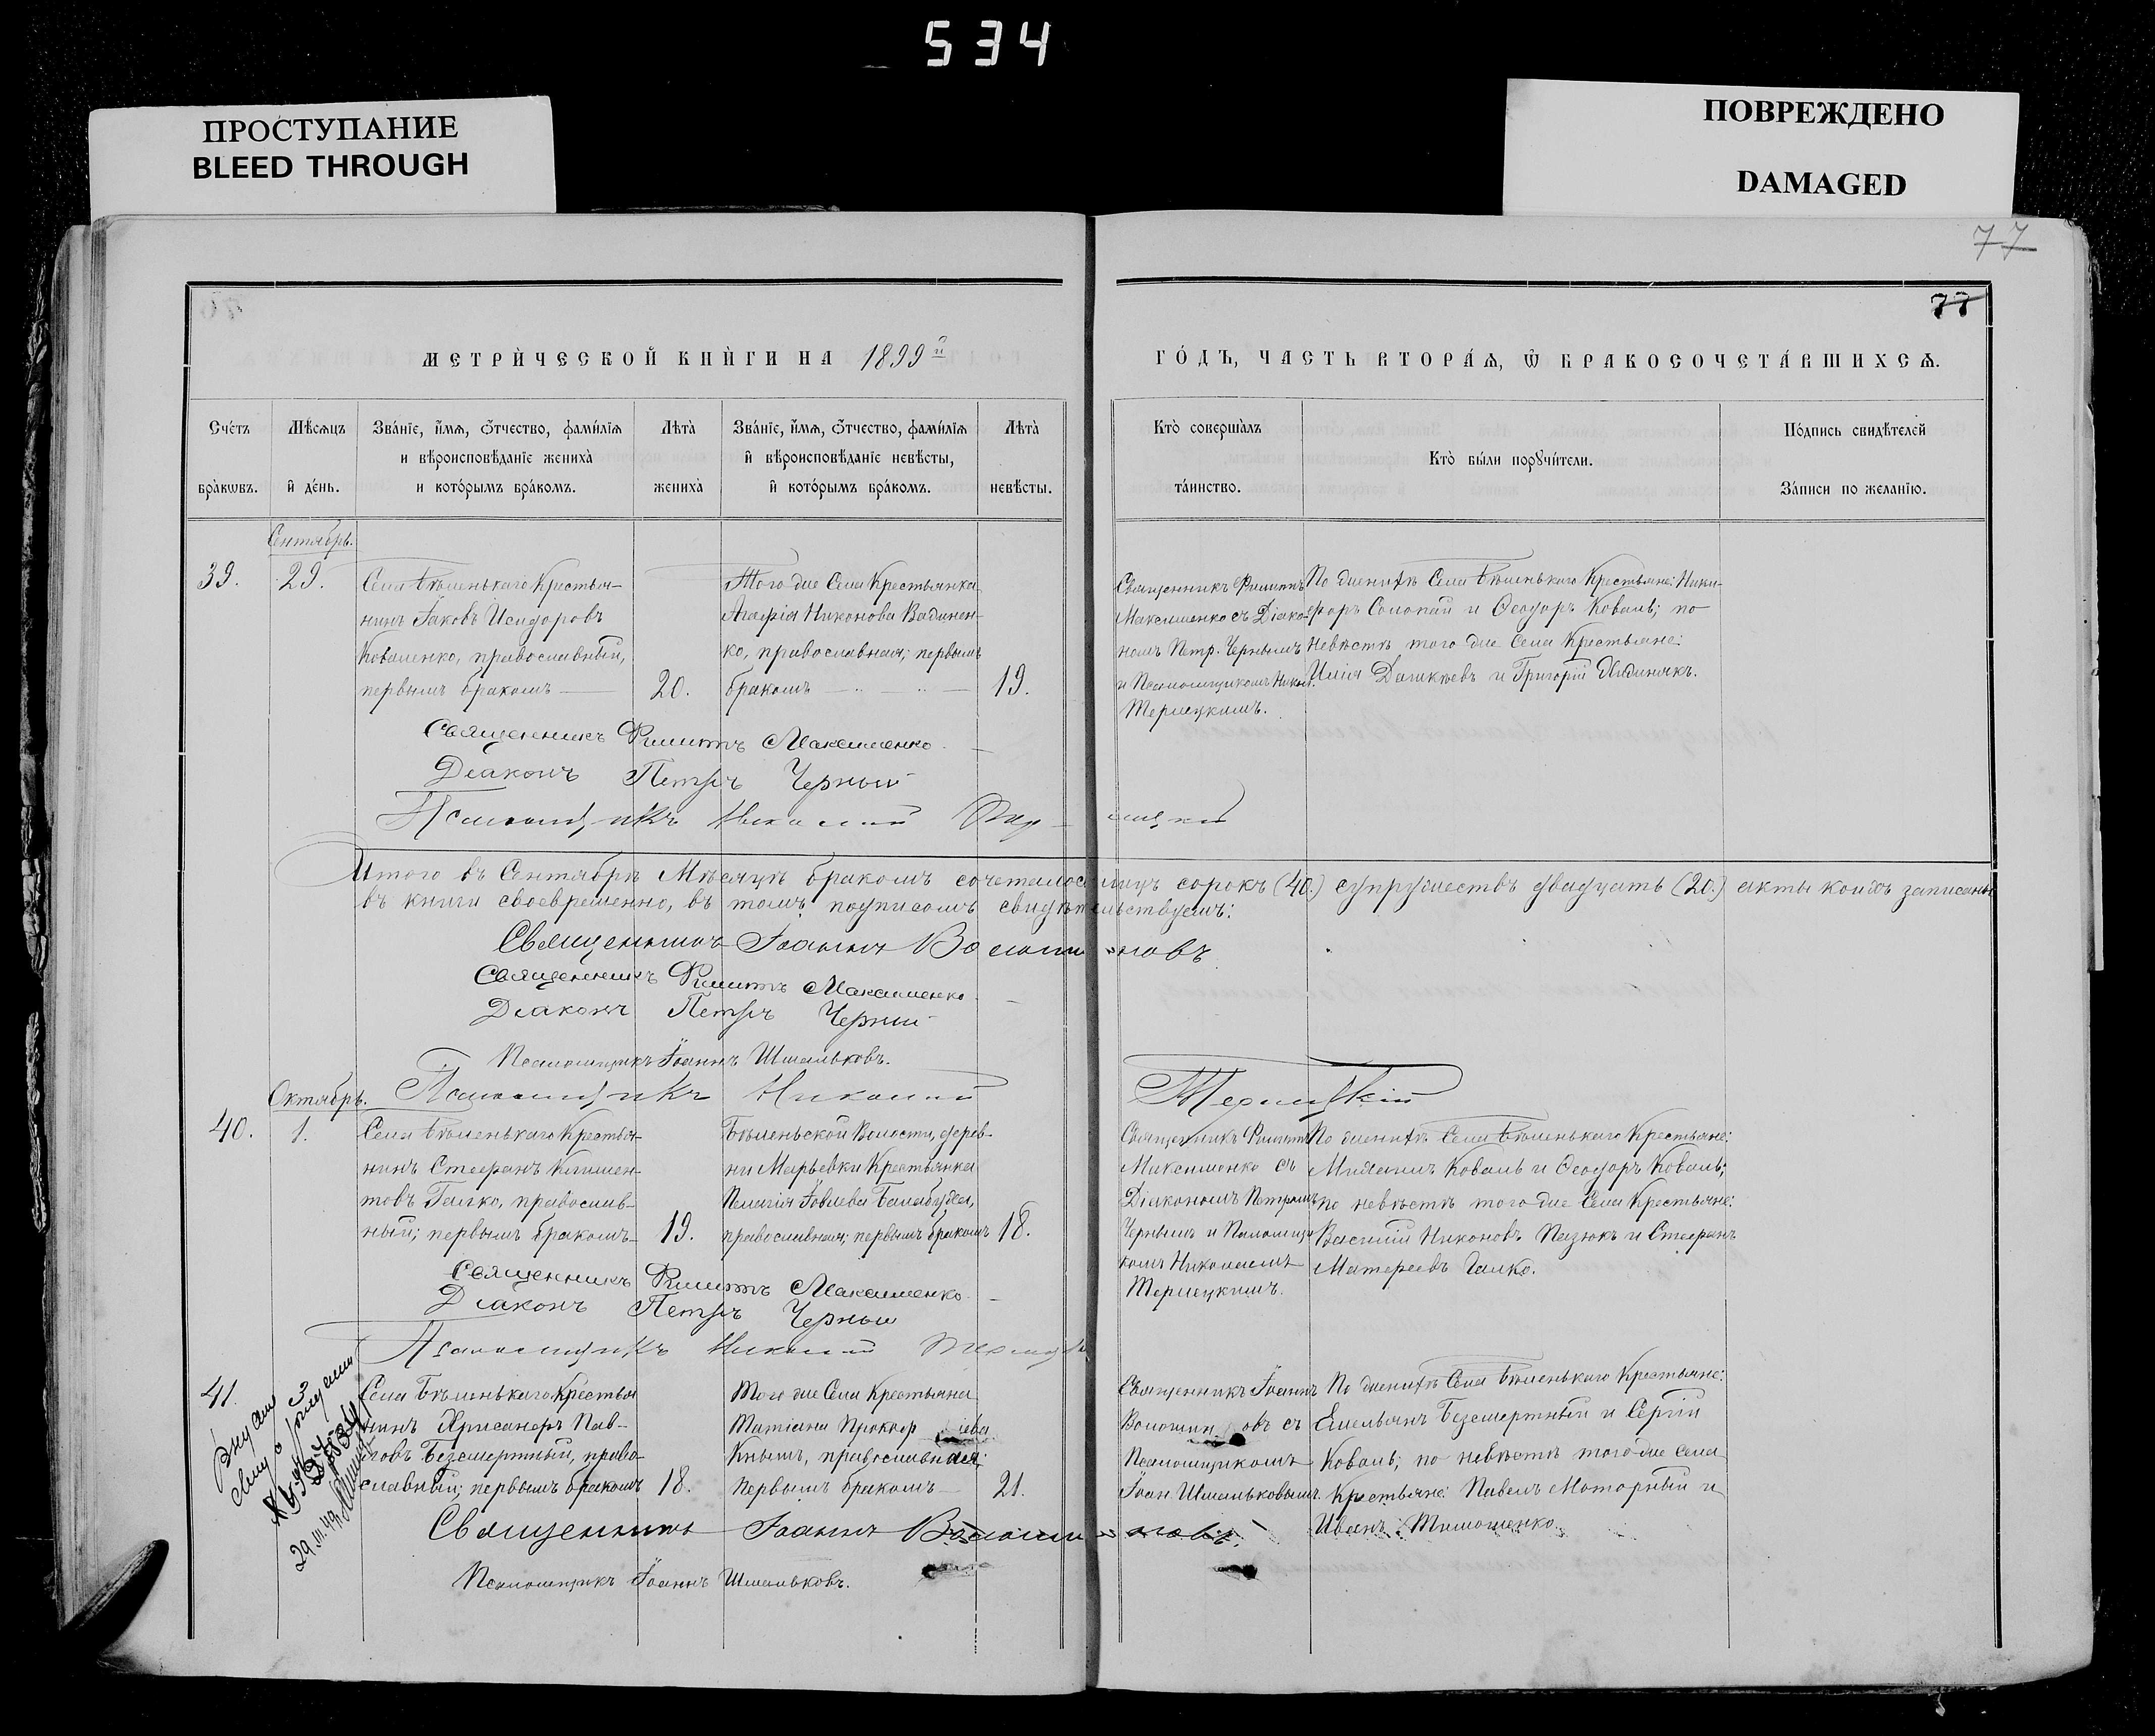 534
ПРОСТУПАНИЕ
BLEED THROUGH
ПОВРЕЖДЕНО
DAMAGED
77
77
МЕТРИ́ЧЕСКОЙ КНИ́ГИ НА 1899й
ГО́ДЪ, ЧАСТЬ ВТОРА́Ѧ, Ѡ БРАКОСОЧЕТА́ВШИХСѦ.
Сче́тъ бра́кѡвъ.
Мѣ́сѧцъ и҆ де́нь.
Зва́нїе, и҆́мѧ, ѻ҆́тчество, фами́лїѧ
и вѣроисповѣ́данїе жениха̀
и кото́рымъ бра́комъ.
Лѣта̀ жениха̀
Зва́нїе, и҆́мѧ, ѻ҆́тчество, фами́лїѧ
и҆ вѣроисповѣ́данїе невѣ́сты,
и҆ кото́рымъ бра́комъ.
Лѣта̀ невѣ́сты.
Кто̀ соверша́лъ
та́инство.
Кто̀ бы́ли порꙋчи́тели.
По́дпись свидѣ́телей
За́писи по жела́нїю.
Сентябрь.
39.
29.
Села Бѣленькаго Крестья-
нинъ Іаковъ Исидоровъ
Коваленко, православный,
первымъ бракомъ
20.
Того же Села Крестьянка
Агафія Никонова Вадинен-
ко, православная; первымъ
бракомъ
19.
Священникъ Филиппъ
Максименко съ Діако-
номъ Петр. Чернымъ
и Псаломщикомъ Никол.
Терлецкимъ.
По женихѣ Села Бѣленькаго Крестьяне: Ники-
форъ Солопай и Ѳеодоръ Коваль; по
невѣстѣ того же Села Крестьяне:
Илія Дашкѣевъ и Григорій Хидинякъ.
Священникъ Филиппъ Максименко
Діаконъ Петръ Черный
Псаломщикъ Николай Терлецкій
Итого въ Сентябрѣ Мѣсяцѣ бракомъ сочеталось лицъ сорокъ (40.) супружествъ двадцать (20.) акты коихъ записаны
въ книги своевременно, въ томъ подписомъ свидѣтельствуемъ:
Священникъ Іоаннъ Волошиновъ
Священникъ Филиппъ Максименко
Діаконъ Петръ Черный
Псаломщикъ Іоаннъ Шмальковъ.
Псаломщикъ Николай Терлецкій
Октябрь.
40.
1.
Села Бѣленькаго Крестья-
нинъ Стефанъ Климен-
товъ Галко, православ-
ный; первымъ бракомъ
19.
Бѣленьской Волости, дерев-
ни Марьевки Крестьянка
Пелагія Іовлева Балабуха,
православная; первымъ бракомъ
18.
Священникъ Филиппъ
Максименко съ
Діакономъ Петромъ
Чернымъ и Псаломщи-
комъ Николаемъ
Терлецкимъ.
По женихѣ Села Бѣленькаго Крестьяне:
Михаилъ Коваль и Ѳеодоръ Коваль;
по невѣстѣ того же Села Крестьяне:
Василій Никоновъ Пазюкъ и Стефанъ
Матфеевъ Галко.
Священникъ Филиппъ Максименко
Діаконъ Петръ Черный
Псаломщикъ Николай
41.
3
Села Бѣленькаго Крестья
нинъ Хрисанфъ Пав-
ловъ Безсмертный, право-
славный; первымъ бракомъ
18.
Того же Села Крестьянка
Татіана Прокофіева
Кнышъ, православная;
Первымъ бракомъ
21.
Священникъ Іоаннъ
Волошиновъ съ
Псаломщикомъ
Іоан Шмальковымъ.
По женихѣ Села Бѣленькаго Крестьяне:
Емельянъ Безсмертный и Сергій
Коваль; по невѣстѣ того же села
Крестьяне: Павелъ Моторный и
Иванъ Тимошенко.
Священникъ Іоаннъ Волошиновъ.
Псаломщикъ Іоаннъ Шмальковъ.